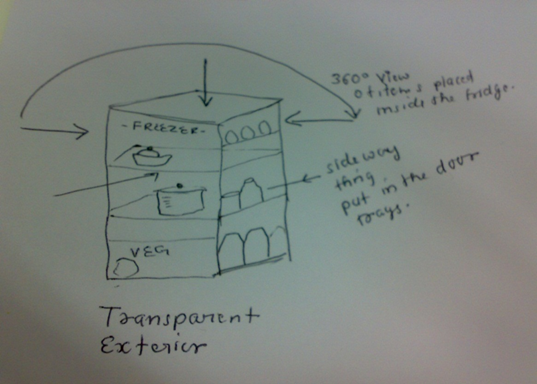 360° view
of items placed
inside the fridge.
- FREEZER -
side way
thing
put in the door
trays.
VEG
Transparent
Exterior